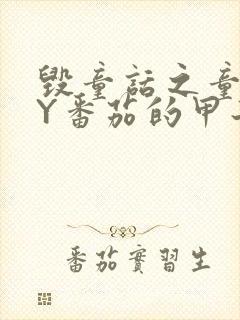 毀童話之童
Y番茄的甲
番茄實習生